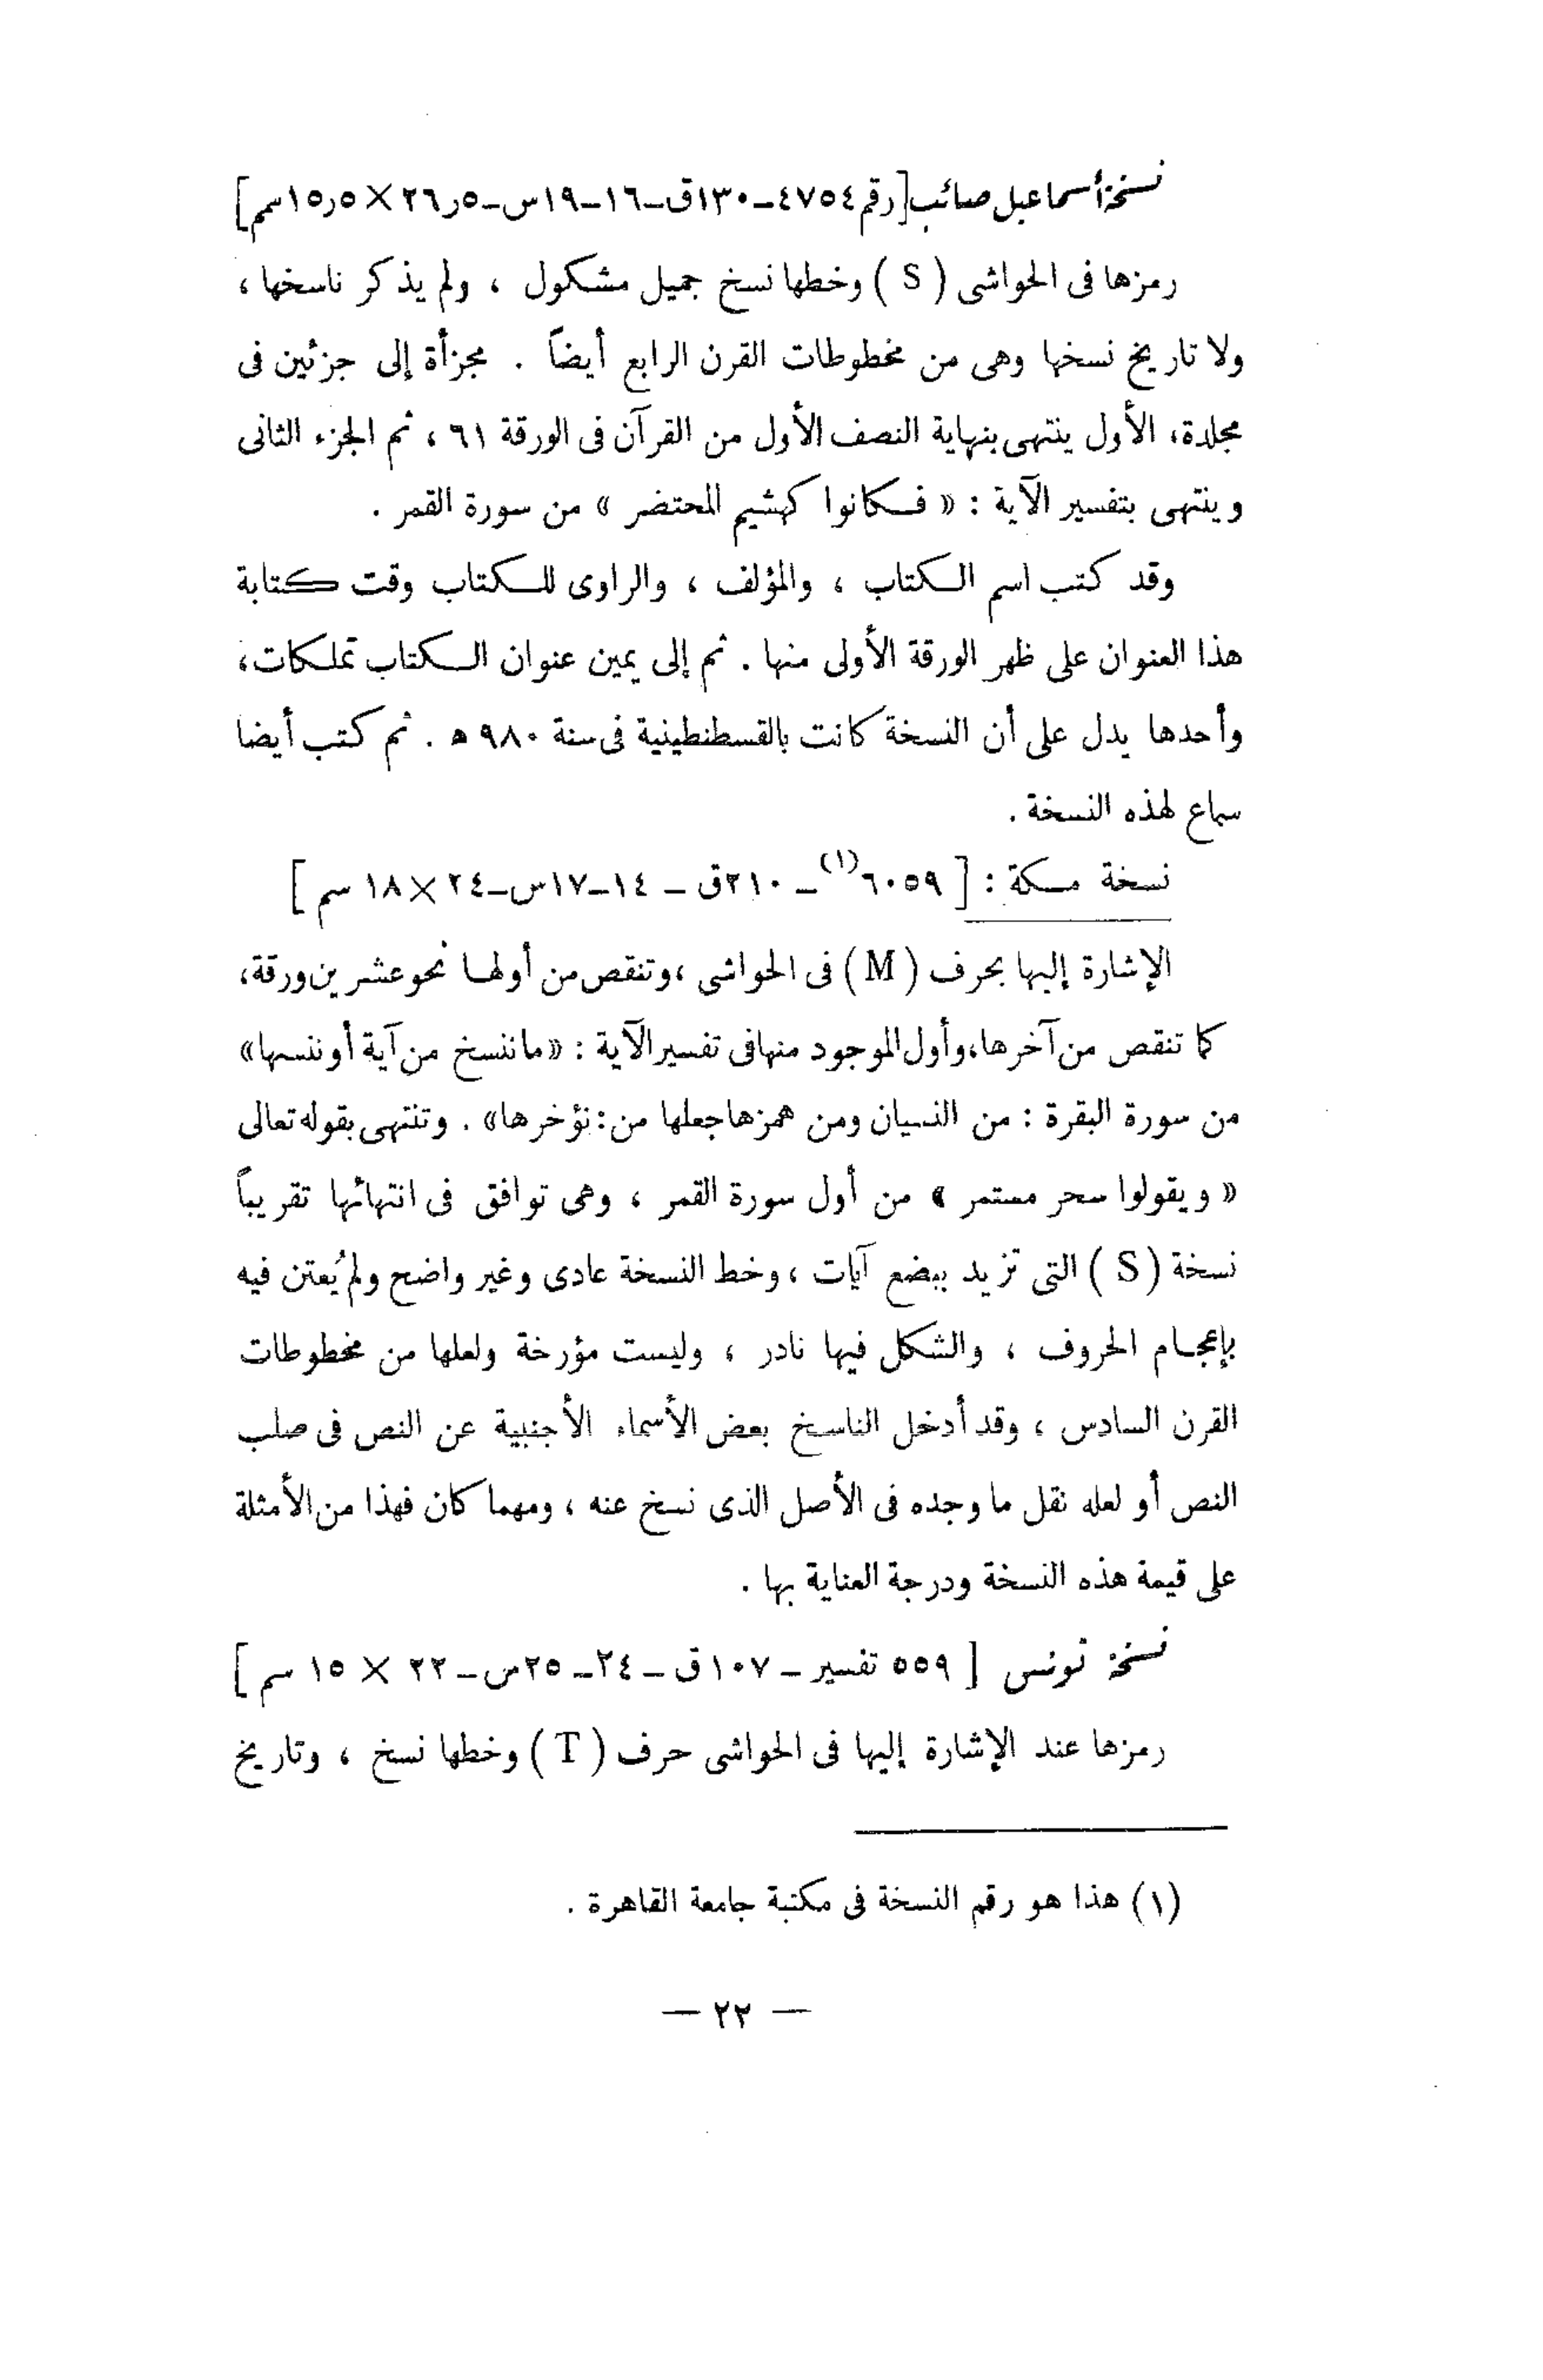 نسخة أسماعيل صائب [رقم ٤٧٥٤–١٣٠ق–١٦–١٩س–٢٦ر٥×١٥ر٥سم]
رمزها فى الحواشى ( S ) وخطها نسخ جميل مشكول ، ولم يذكر ناسخها ،
ولا تاريخ نسخها وهى من مخطوطات القرن الرابع أيضاً . مجزأة إلى جزئين فى
مجلدة، الأول ينتهى بنهاية النصف الأول من القرآن فى الورقة ٦١ ، ثم الجزء الثانى
وينتهى بتفسير الآية : « فكانوا كهشيم المحتضر » من سورة القمر .
وقد كتب اسم الكتاب ، والمؤلف ، والراوى للكتاب وقت كتابة
هذا العنوان على ظهر الورقة الأولى منها . ثم إلى يمين عنوان الكتاب تملكات،
وأحدها يدل على أن النسخة كانت بالقسطنطينية فى سنة ٩٨٠ ه . ثم كتب أيضا
سماع لهذه النسخة .
نسخة مكة : [ ٦٠٥٩(١) – ٢١٠ق – ١٤–١٧س–٢٤×١٨ سم ]
الإشارة إليها بحرف ( M ) فى الحواشى ،وتنقص من أولها نحو عشرين ورقة،
كما تنقص من آخرها،وأول الموجود منها فى تفسير الآية : «ما ننسخ من آية أو ننسها»
من سورة البقرة : من النسيان ومن همزها جعلها من : نؤخرها» . وتنتهى بقوله تعالى
« ويقولوا سحر مستمر » من أول سورة القمر ، وهى توافق فى انتهائها تقريباً
نسخة ( S ) التى تزيد ببضع آيات ، وخط النسخة عادى وغير واضح ولم يُعتن فيه
بإعجام الحروف ، والشكل فيها نادر ، وليست مؤرخة ولعلها من مخطوطات
القرن السادس ، وقد أدخل الناسخ بعض الأسماء الأجنبية عن النص فى صلب
النص أو لعله نقل ما وجده فى الأصل الذى نسخ عنه ، ومهما كان فهذا من الأمثلة
على قيمة هذه النسخة ودرجة العناية بها .
نسخة تونس [ ٥٥٩ تفسير – ١٠٧ ق – ٢٤– ٢٥س– ٢٢ × ١٥ سم ]
رمزها عند الإشارة إليها فى الحواشى حرف ( T ) وخطها نسخ ، وتاريخ
(١) هذا هو رقم النسخة فى مكتبة جامعة القاهرة .
— ٢٢ —